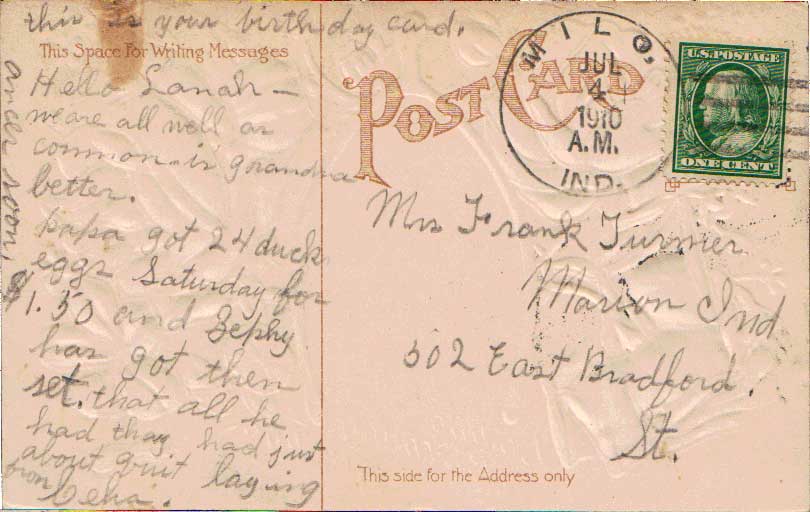 this is your birthday card.
This Space For Writing Messages
Hello Lanah —
we are all well as
common is grandma
better.
papa got 24 duck
eggs Saturday for
$1.50 and Zephy
has got them
set. that all he
had they had just
about quit laying
from Ceha.
ancer soon.
POST CARD
MILO,
JUL
4
1910
A.M.
IND.
U.S. POSTAGE
ONE CENT
Mrs Frank Turnier
Marion Ind
502 East Bradford.
St.
This side for the Address only